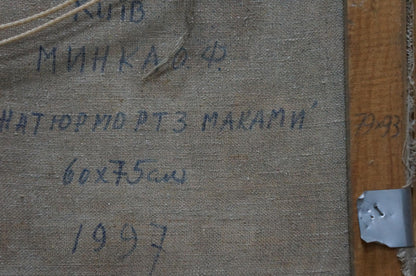 КИЇВ
МИНКА О.Ф.
НАТЮРМОРТ З МАКАМИ"
60х75см
1997